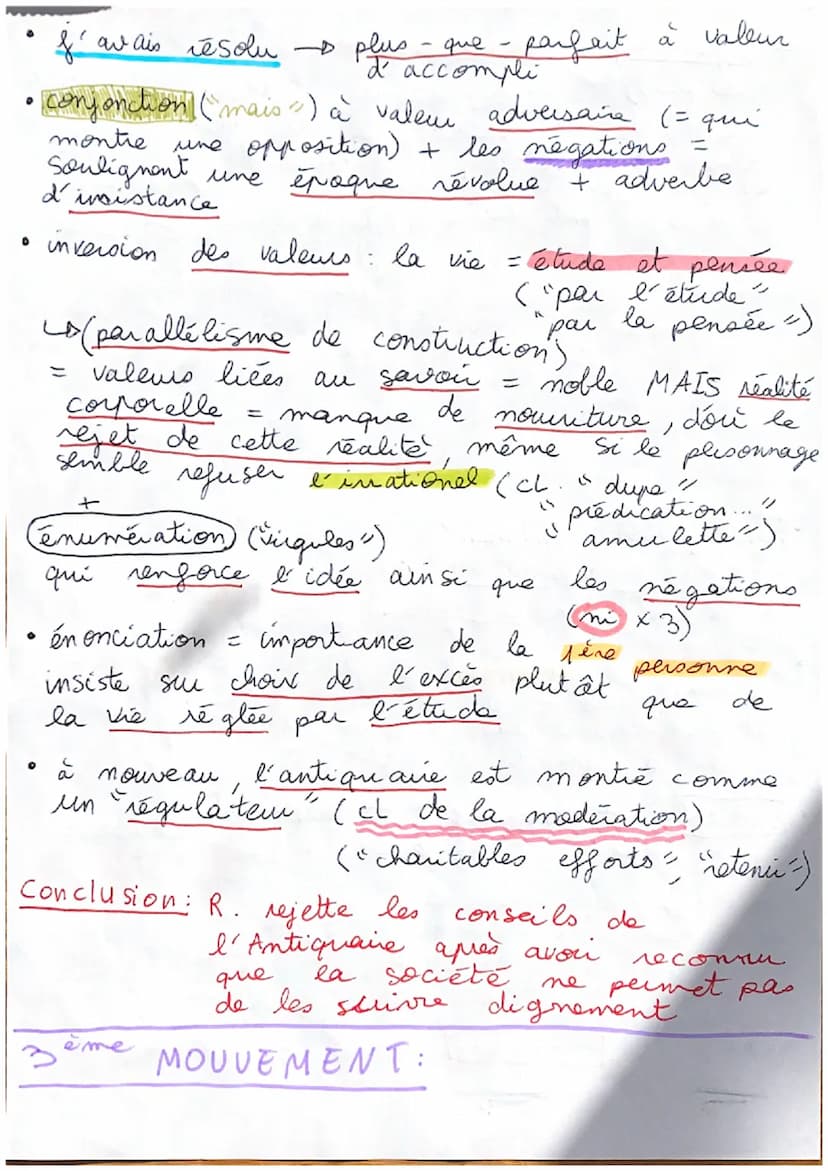 • j'avais résolu → plus-que-parfait à valeur
d'accompli
• conjonction ("mais") à valeur adversaire (= qui
montre une opposition) + les négations =
soulignent une époque révolue + adverbe
d'insistance
• inversion des valeurs : la vie = étude et pensée
("par l'étude"
"par la pensée")
↳ (parallélisme de construction)
= valeurs liées au savoir = noble MAIS réalité
corporelle = manque de nourriture, d'où le
rejet de cette réalité, même si le personnage
semble refuser l'irrationel (cl. "dupe"
+
"prédication..."
"amulette")
énumération ("virgules")
qui renforce l'idée ainsi que les négations
(ni x 3)
• énonciation = importance de la 1ère personne
insiste sur choix de l'excès plutôt que de
la vie réglée par l'étude
• à nouveau, l'antiquaire est montré comme
un "régulateur" (cl de la modération)
("charitables efforts", "retenir")
Conclusion : R. rejette les conseils de
l'Antiquaire après avoir reconnu
que la société ne permet pas
de les suivre dignement
3ème MOUVEMENT :